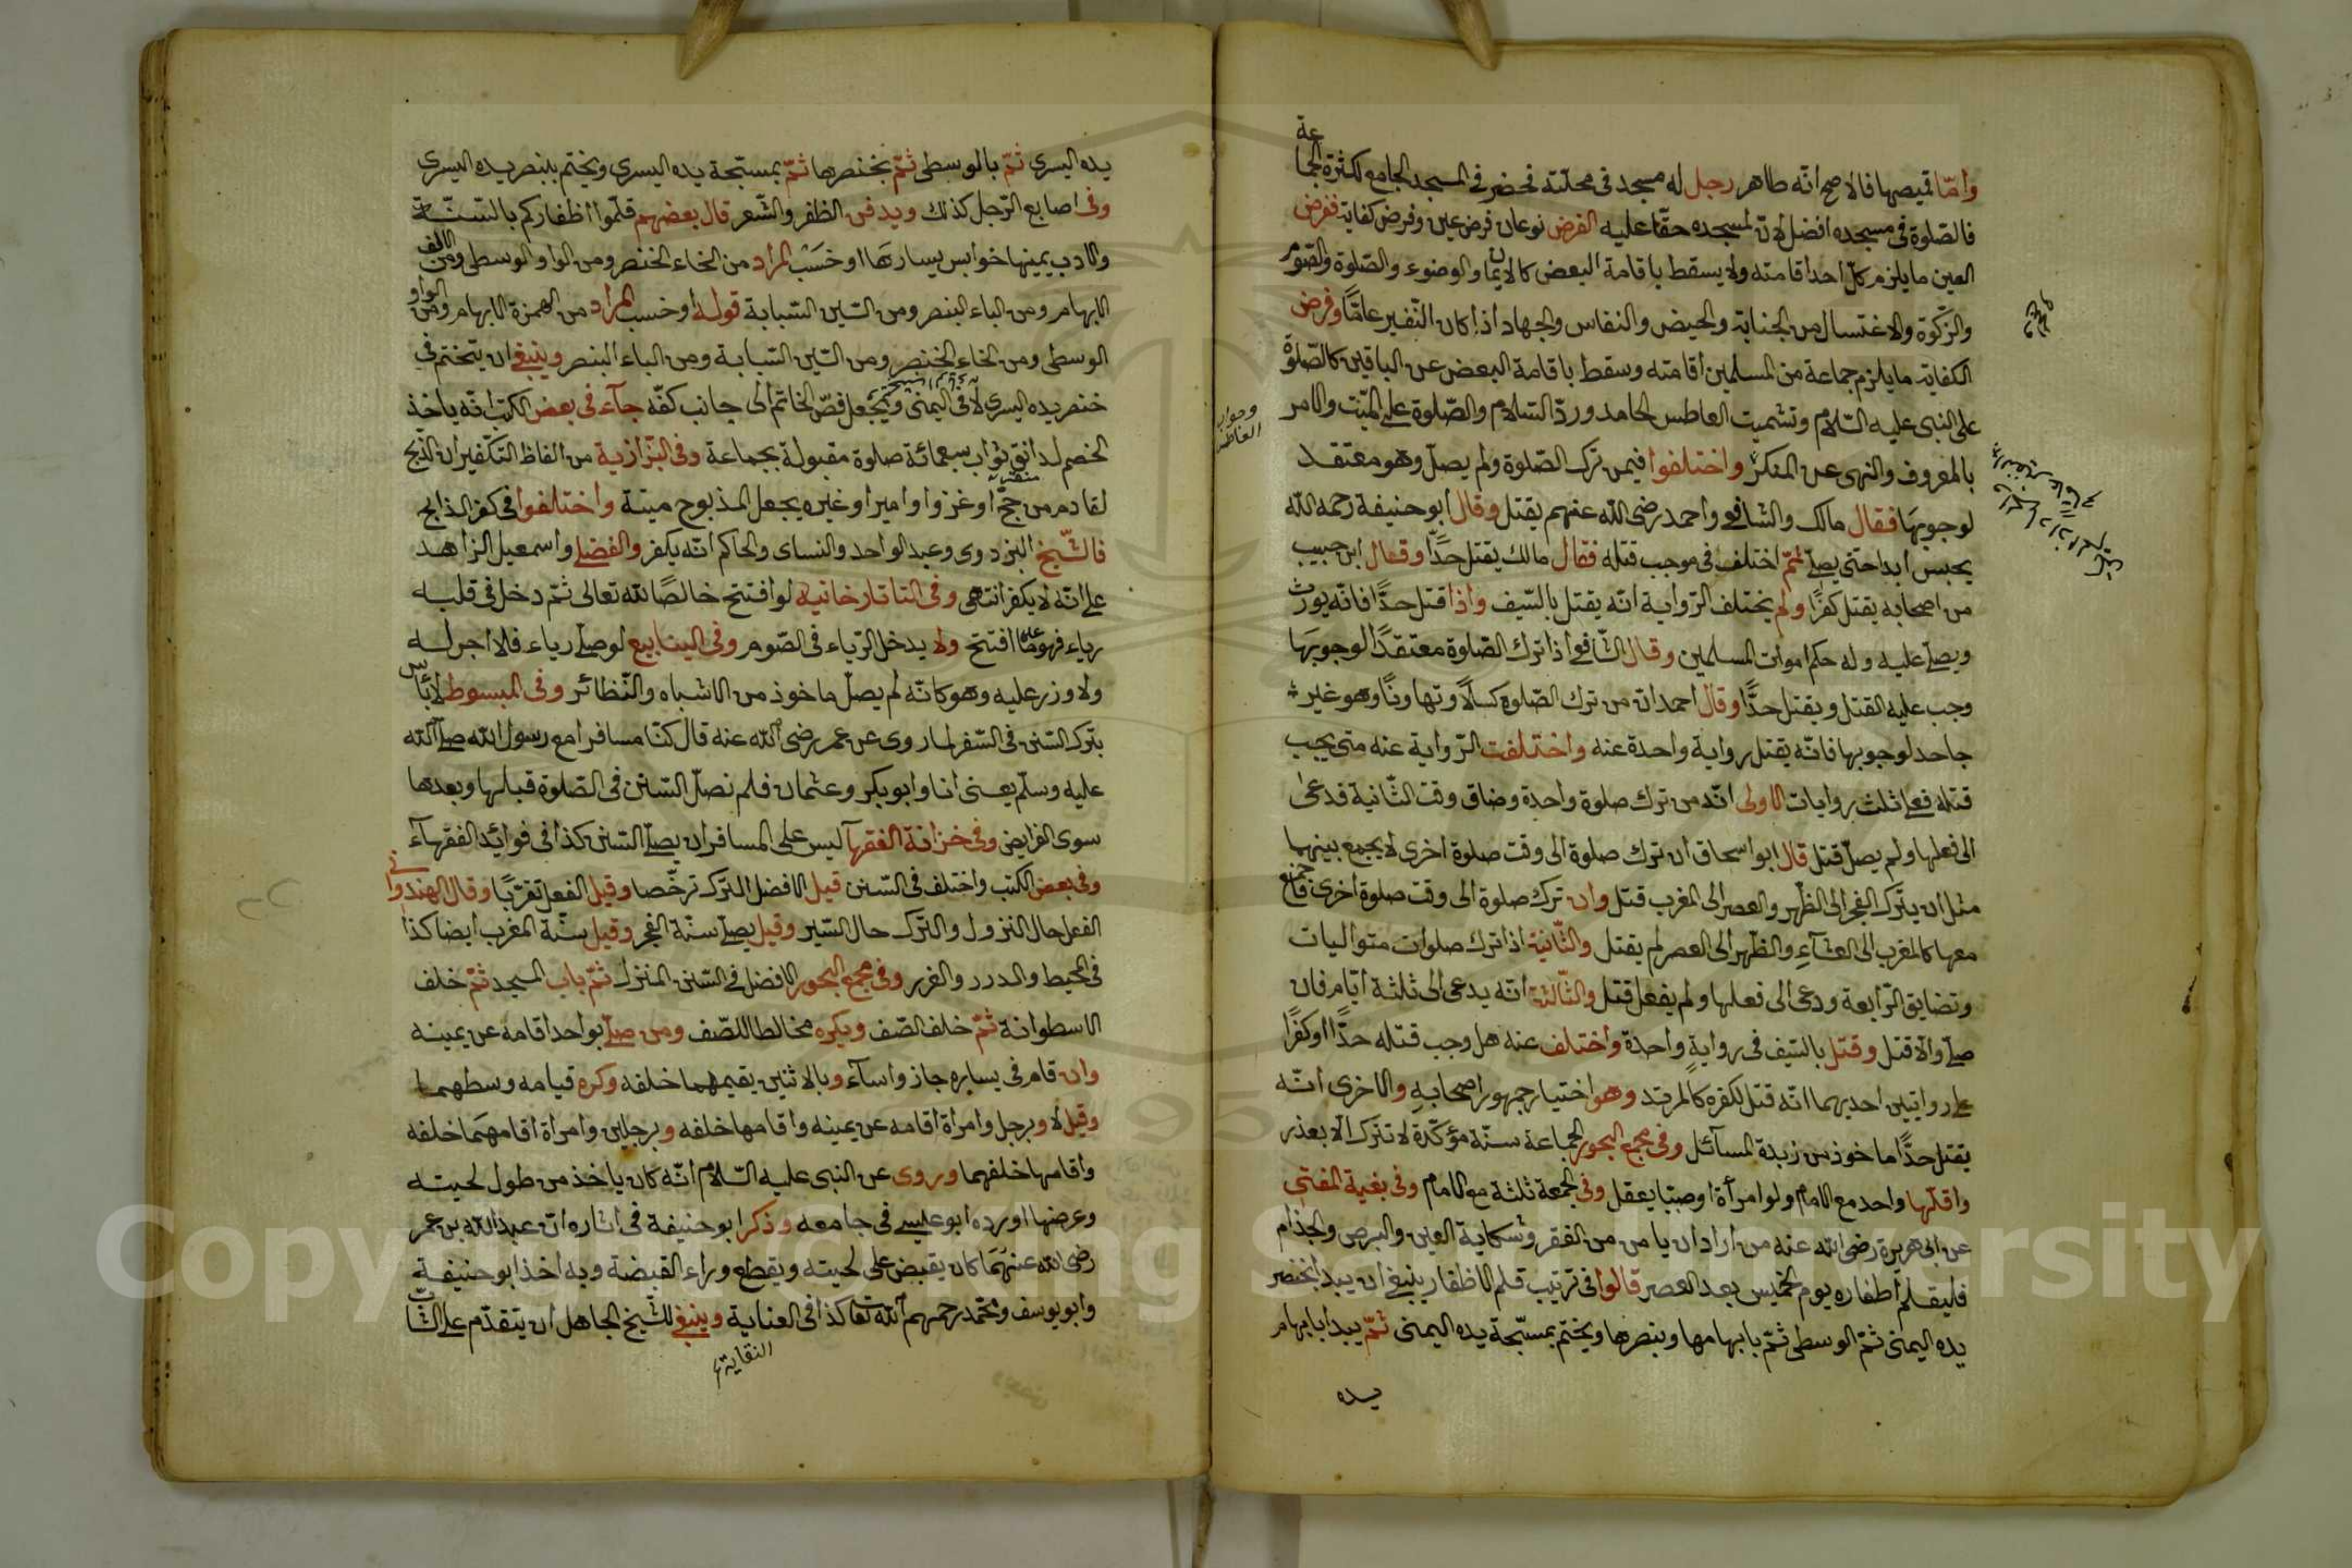 وأمّا قميصها فالاصح انّه طاهر رجل له مسجد فى محلّته فحضر فى المسجد الجامع لكثرة الجماعة
فالصّلوة فى مسجده افضل لانّ لمسجده حقّا عليه الفرض نوعان فرض عين وفرض كفاية ففرض
العين ما يلزم كلّ احد اقامته ولا يسقط باقامة البعض كالايمان والوضوء والصّلوة والصّوم
والزّكوة والاغتسال من الجنابة والحيض والنفاس والجهاد اذا كان النّفير عامًّا وفرض
الكفاية ما يلزم جماعة من المسلمين اقامته وسقط باقامة البعض عن الباقين كالصّلوة
على النبى عليه السّلام وتشميت العاطس الحامد وردّ السّلام والصّلوة على الميّت والامر
وجواب العاطس
بالمعروف والنهى عن المنكر واختلفوا فيمن ترك الصّلوة ولم يصلّ وهو معتقد
لوجوبها فقال مالك والشافعى واحمد رضى الله عنهم يقتل وقال ابو حنيفة رحمه الله
يحبس ابدا حتى يصلّى ثمّ اختلف فى موجب قتله فقال مالك يقتل حدًّا وقال ابن حبيب
من اصحابه يقتل كفرًا ولم يختلف الرّواية انّه يقتل بالسّيف واذا قتل حدًّا فانّه يورث
ويصلّى عليه وله حكم اموات المسلمين وقال الشّافعى اذا ترك الصّلوة معتقدًا لوجوبها
وجب عليه القتل ويقتل حدًّا وقال احمد ان من ترك الصّلوة كسلًا وتهاونًا وهو غير
جاحد لوجوبها فانّه يقتل رواية واحدة عنه واختلفت الرّواية عنه متى يجب
قتله فعلى ثلث روايات الاولى انّه من ترك صلوة واحدة وضاق وقت الثّانية قد دعى
الى فعلها ولم يصلّ قتل قال ابو اسحاق ان ترك صلوة الى وقت صلوة اخرى لا يجمع بينهما
مثل ان يترك الفجر الى الظّهر والعصر الى المغرب قتل وان ترك صلوة الى وقت صلوة اخرى تجمع
معها كالمغرب الى العشآء والظّهر الى العصر لم يقتل والثّانية اذا ترك صلوات متواليات
وتضايق الرّابعة ودعى الى فعلها ولم يفعل قتل والثّالثة انّه يدعى الى ثلثة ايّام فان
صلّى والّا قتل وقتل بالسّيف فى رواية واحدة واختلف عنه هل وجب قتله حدًّا او كفرًا
على روايتين احديهما انّه قتل لكفره كالمرتد وهو اختيار جمهور اصحابه والاخرى انّه
يقتل حدًّا ماخوذ من زبدة المسآئل وفى مجمع البحور الجماعة سنّة مؤكّدة لا تترك الّا بعذر
واقلّها واحد مع الامام ولو امرأة او صبيّا يعقل وفى الجمعة ثلثة مع الامام وفى بغية المفتى
عن ابى هريرة رضى الله عنه من اراد ان يامن من الفقر وشكاية العين والبرص والجذام
فليقلم أظفاره يوم الخميس بعد العصر قالوا فى ترتيب قلم الاظفار ينبغى ان يبدأ بخنصر
يده اليمنى ثمّ الوسطى ثمّ بابهامها وبنصرها ويختم بمسبّحة يده اليمنى ثمّ يبدأ بابهام
يده
يده اليسرى ثمّ بالوسطى ثمّ بخنصرها ثمّ بمسبّحة يده اليسرى ويختم ببنصر يده اليسرى
وفى اصابع الرّجل كذلك ويدفن الظفر والشّعر قال بعضهم قلّموا اظفاركم بالسّنّة
والادب يمينها خوابس يسارها اوخسب المراد من الخاء الخنصر ومن الواو الوسطى ومن الالف
الابهام ومن الباء البنصر ومن السّين السّبابة قوله اوخسب المراد من الهمزة الابهام ومن الواو
الوسطى ومن الخاء الخنصر ومن السّين السّبابة ومن الباء البنصر وينبغى ان يتختم فى
خنصر يده اليسرى لا فى اليمنى ويجعل فصّ الخاتم الى جانب كفّه جآء فى بعض الكتب انّه ياخذ
الخصم لدانق ثواب سبعمائة صلوة مقبولة بجماعة وفى البزازية من الفاظ التّكفير ان الذّبح
لقادم من حجّ او غزو او امير او غيره يجعل المذبوح ميتة واختلفوا فى كفر الذابح
فالشّيخ البزدوى وعبد الواحد والنساى والحاكم انّه يكفر والفضلى واسمعيل الزاهد
على انّه لا يكفر انتهى وفى التاتارخانية لو افتتح خالصًا لله تعالى ثمّ دخل فى قلبه
رياء فهو على ما افتتح ولا يدخل الرّياء فى الصّوم وفى الينابيع لو صلّى رياء فلا اجر له
ولا وزر عليه وهو كانّه لم يصلّ ماخوذ من الاشباه والنّظائر وفى المبسوط لا بأس
بترك السّنن فى السّفر لما روى عن عمر رضى الله عنه قال كنّا مسافرا مع رسول الله صلى الله
عليه وسلّم يعنى انا وابو بكر وعثمان فلم نصلّ السّنن فى الصّلوة قبلها وبعدها
سوى الفرايض وفى خزانة الفقهآ ليس على المسافر ان يصلّى السّنن كذا فى فوائد الفقهآء
وفى بعض الكتب واختلف فى السّنن قيل الافضل التّرك ترخّصا وقيل الفعل تقرّبًا وقال الهندوانى
الفعل حال النزول والتّرك حال السّير وقيل يصلّى سنّة الفجر وقيل سنّة المغرب ايضا كذا
فى المحيط والدرر والغرر وفى مجمع البحور الافضل فى السّنن المنزل ثمّ باب المسجد ثمّ خلف
الاسطوانة ثمّ خلف الصّف ويكره مخالطا للصّف ومن صلّى بواحد اقامه عن يمينه
وان قام فى يساره جاز واسآء وبالاثنين يقيمهما خلفه وكره قيامه وسطهما
وقيل لا وبرجل وامرأة اقامه عن يمينه واقامها خلفه وبرجلين وامرأة اقامهما خلفه
واقامها خلفهما وروى عن النبى عليه السّلام انّه كان ياخذ من طول لحيته
وعرضها اورده ابو عليسى فى جامعه وذكر ابو حنيفة فى اثاره ان عبد الله بن عمر
رضى الله عنهما كان يقبض على لحيته ويقطع وراء القبضة وبه اخذ ابو حنيفة
وابو يوسف ومحمّد رحمهم الله تعا كذا فى العناية وينبغى للشّيخ الجاهل ان يتقدّم على الشّاب
النقاية
Copyright © King Saud University